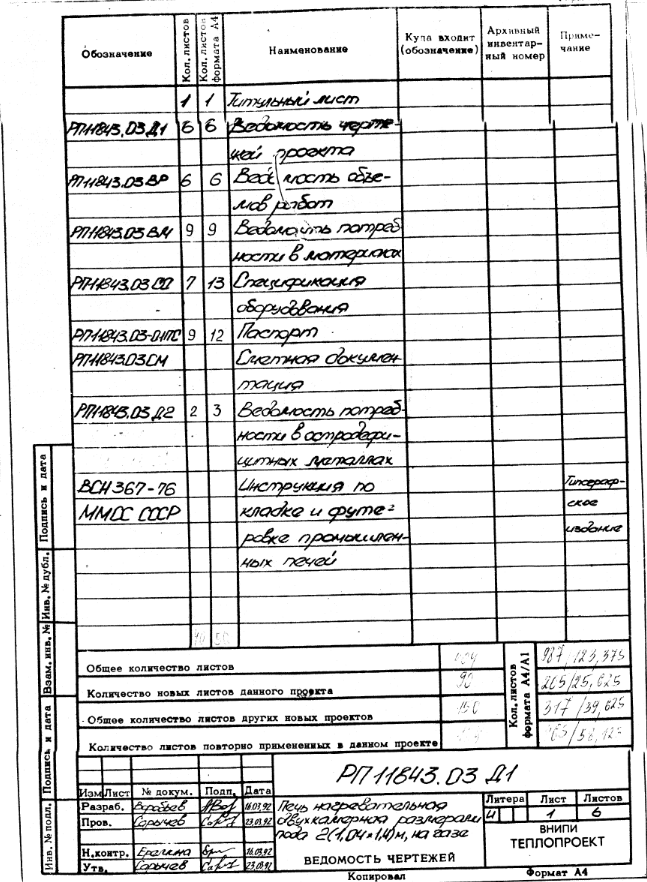 Обозначение Кол. листов Кол. листов формата А4 Наименование Куда входит (обозначение) Архивный инвентарный номер Примечание
1 1 Титульный лист
РП11843.03 Д1 6 6 Ведомость черте-
жей проекта
РП11843.03 ВР 6 6 Ведомость объе-
мов работ
РП11843.03 ВМ 9 9 Ведомость потреб-
ности в материалах
РП11843.03 СО 7 13 Спецификация
оборудования
РП11843.03-01ПС 9 12 Паспорт
РП11843.03 СМ Сметная докумен-
тация
РП11843.03 Д2 2 3 Ведомость потреб-
ности в остродефи-
цитных металлах
ВСН 367-76 Инструкция по Типограф-
ММСС СССР кладке и футе- ское
ровке промышлен- издание
ных печей
Общее количество листов
Количество новых листов данного проекта 90
Общее количество листов других новых проектов
Количество листов повторно примененных в данном проекте
Кол. листов формата А4/А1
987/123,375
205/25,625
317/39,625
Подпись и дата
Инв. № дубл.
Взам. инв. №
Подпись и дата
Инв. № подл.
РП 11843.03 Д1
Изм Лист № докум. Подп. Дата
Разраб. Воробьев 16.03.92
Пров. Сорычев 23.03.92
Н.контр. Ерагина 16.03.92
Утв. Сорычев 23.03.92
Печь нагревательная
двухкамерная размерами
пода 2(1,04×1,4)м, на газе
ВЕДОМОСТЬ ЧЕРТЕЖЕЙ
Литера Лист Листов
И 1 6
ВНИПИ
ТЕПЛОПРОЕКТ
Копировал Формат А4